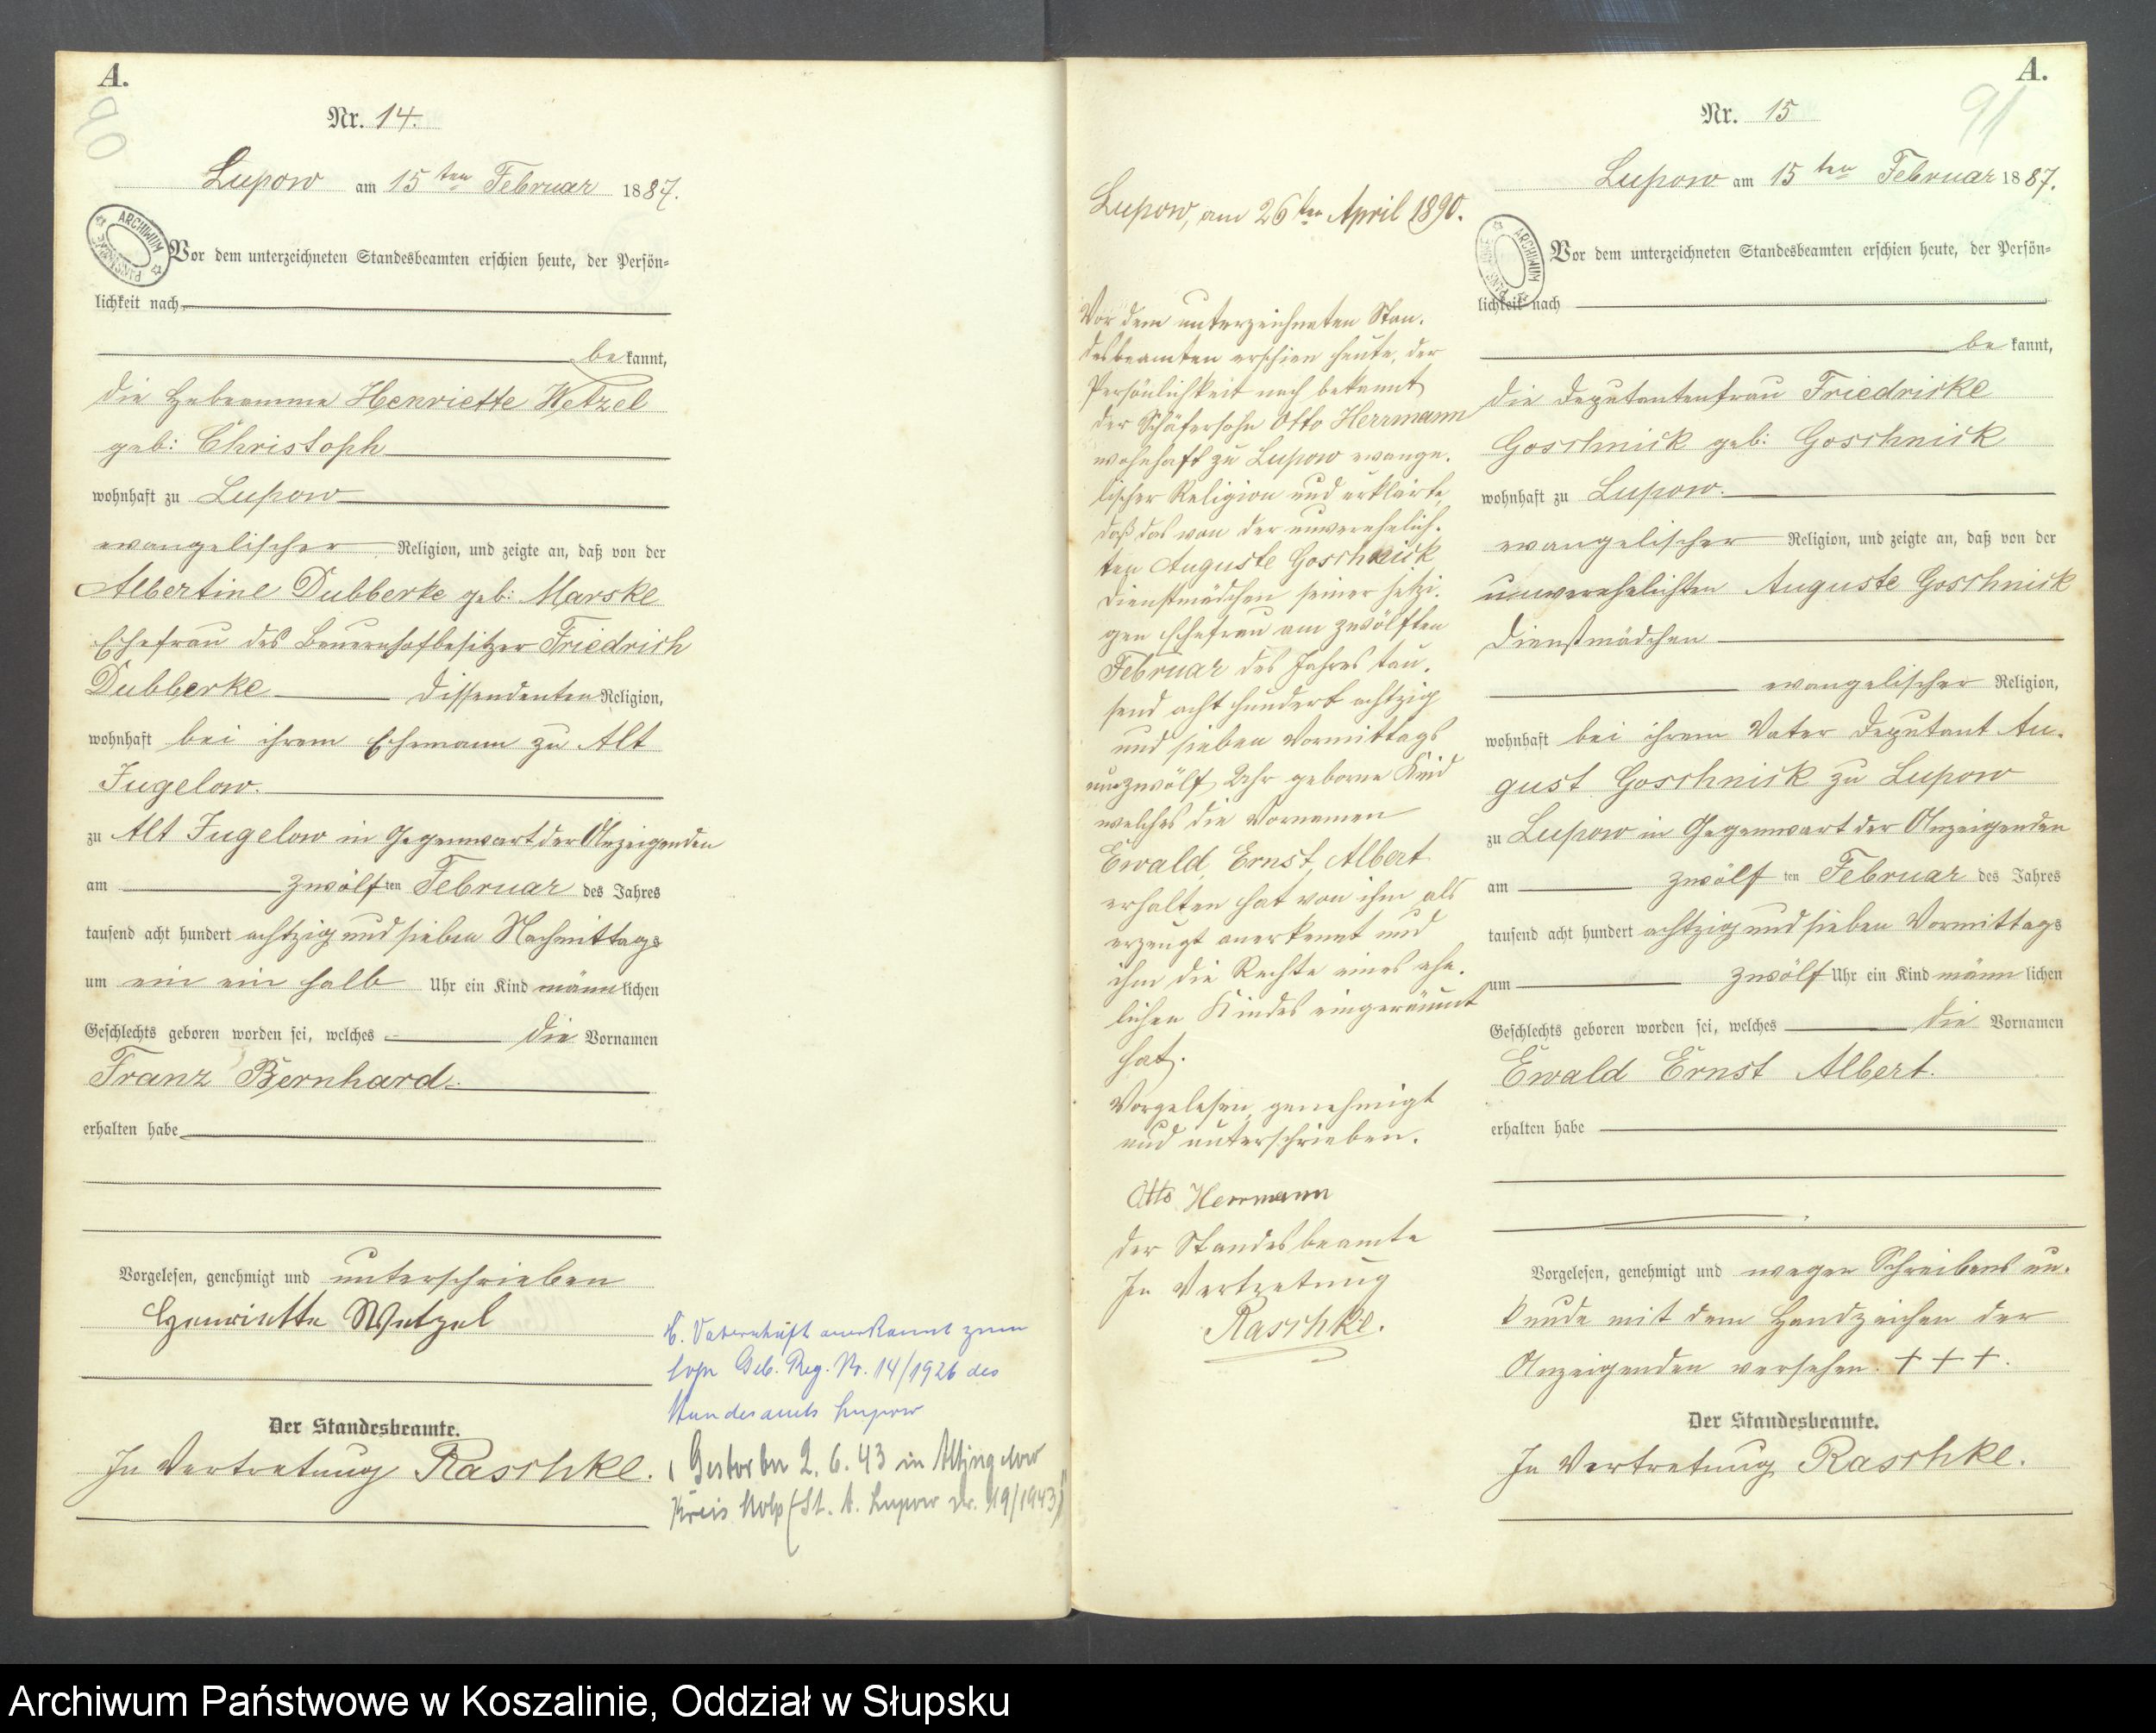 A.
90
Nr. 14.
Lupow am 15ten Februar 1887.
ARCHIWUM
Vor dem unterzeichneten Standesbeamten erschien heute, der Persön-
lichkeit nach
bekannt,
die Hebeamme Henriette Wetzel
geb: Christoph
wohnhaft zu Lupow
evangelischer Religion, und zeigte an, daß von der
Albertine Dubberke geb: Marske
Ehefrau des Bauernhofbesitzer Friedrich
Dubberke dissendenten Religion,
wohnhaft bei ihrem Ehemann zu Alt
Jugelow.
zu Alt Jugelow in Gegenwart der Anzeigenden
am zwölften Februar des Jahres
tausend acht hundert achtzig und sieben Nachmittags
um ein ein halb Uhr ein Kind männlichen
Geschlechts geboren worden sei, welches die Vornamen
Franz Bernhard.
erhalten habe
Vorgelesen, genehmigt und unterschrieben
Henriette Wetzel
Der Standesbeamte.
In Vertretung Raschke.
Vaterschaft anerkannt zum
Geb. Reg. Nr. 14/1926 des
Standesamts Lupow
Gestorben 2. 6. 43 in Altjugelow
Kreis Stolp (St. A. Lupow Nr. 19/1943)
Lupow, am 26ten April 1890.
Vor dem unterzeichneten Stan-
desbeamten erschien heute, der
Persönlichkeit nach bekannt
der Schäfersohn Otto Herrmann
wohnhaft zu Lupow evange-
lischer Religion und erklärte,
daß das von der unverehelich-
ten Auguste Goschnick
Dienstmädchen seiner jetzi-
gen Ehefrau am zwölften
Februar des Jahres tau-
send acht hundert achtzig
und sieben Vormittags
um zwölf Uhr geborne Kind
welches die Vornamen
Ewald, Ernst, Albert
erhalten hat von ihm als
erzeugt anerkennt und
ihm die Rechte eines ehe-
lichen Kindes eingeräumt
hat.
Vorgelesen, genehmigt
und unterschrieben.
Otto Herrmann
Der Standesbeamte
In Vertretung
Raschke.
A.
91
Nr. 15
Lupow am 15ten Februar 1887.
ARCHIWUM
Vor dem unterzeichneten Standesbeamten erschien heute, der Persön-
lichkeit nach
bekannt,
die Deputantenfrau Friedricke
Goschnick geb: Goschnick
wohnhaft zu Lupow.
evangelischer Religion, und zeigte an, daß von der
unverehelichten Auguste Goschnick
Dienstmädchen
evangelischer Religion,
wohnhaft bei ihrem Vater Deputant Au-
gust Goschnick zu Lupow
zu Lupow in Gegenwart der Anzeigenden
am zwölften Februar des Jahres
tausend acht hundert achtzig und sieben Vormittags
um zwölf Uhr ein Kind männlichen
Geschlechts geboren worden sei, welches die Vornamen
Ewald Ernst Albert.
erhalten habe
Vorgelesen, genehmigt und wegen Schreibens un-
kunde mit dem Handzeichen der
Anzeigenden versehen. + + +.
Der Standesbeamte.
In Vertretung Raschke.
Archiwum Państwowe w Koszalinie, Oddział w Słupsku